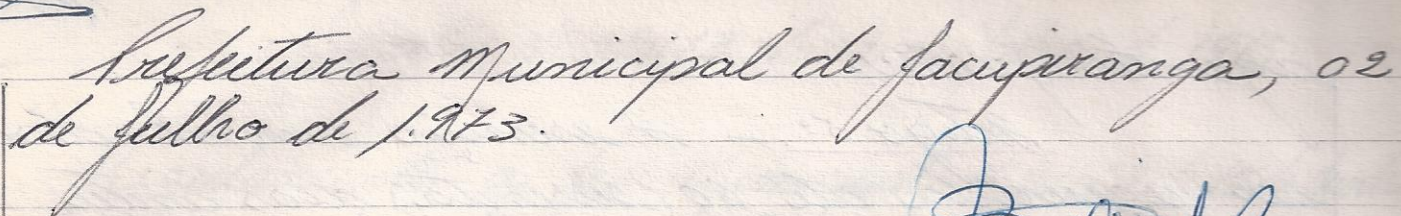 Prefeitura Municipal de Jacupiranga, 02
de Julho de 1.973.